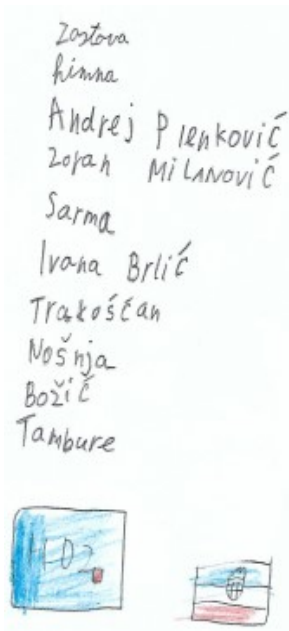 Zastava
himna
Andrej Plenković
Zoran MiLANoviĆ
Sarma
Ivana Brlić
Trakošćan
Nošnja
Božić
Tambure
HDZ